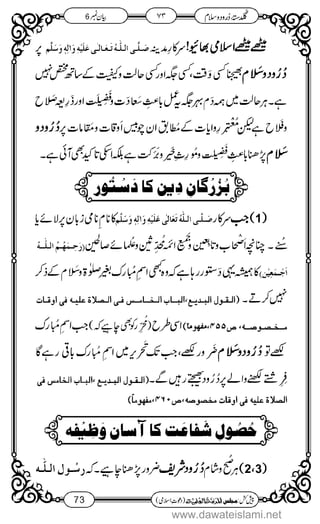 گلدستۂ درود و سلام ۷۳ بیان نمبر 6
میٹھے میٹھے اسلامی بھائیو! سرکارِ مدینہ صَلَّی اللہُ تَعَالٰی عَلَیْہِ وَاٰلِہٖ وَسَلَّم پر
دُرُود و سلام بھیجنا کسی وَقْت، کسی جگہ اور کسی حالت و کَیْفِیَّت کے ساتھ مُخْتَص نہیں
ہے۔ ہر حالت میں ہمہ دَم ہر جگہ یہ عمل باعثِ سَعادَت و فضیلت اور ذَریعۂ صَلاح
و فَلاح ہے لیکن مُعْتَبَر رِوایات کے مُطابِق اُن چوبیس اَوقات و مَقامات پر دُرُود و
سلام پڑھنا باعثِ فضیلت و مُوْرِثِ خَیْر و بَرَکت ہے بلکہ اس کی تاکید بھی آئی ہے۔
بُزُرْگانِ دِین کا دَسْتُور
(1) جب سرکار صَلَّی اللہُ تَعَالٰی عَلَیْہِ وَاٰلِہٖ وَسَلَّم کا نامِ نامی زبان پر لائے یا
سُنے۔ چنانچہ اَصْحاب و تابِعین اور جَمیع اَئمۂ مُحَدِّثین و عُلَمائے صالحین (رِضْوَانُ اللہِ عَلَیْہِمْ
اَجْمَعِیْن) کا ہمیشہ یہی دستور رہا ہے کہ وہ کبھی اسمِ مُبارَک بغیر صلوٰۃ و سلام کے ذکر
نہیں کرتے۔ (القول البدیع، الباب الخامس فی الصلاۃ علیہ فی اوقات
مخصوصہ، ص۴۵۵، مفہوماً) اسی طرح (مُحَرِّر کو بھی چاہیے کہ) جب اسمِ مُبارَک
لکھے تو دُرُود و سلام ضَرور لکھے، جب تک تَحْرِیر میں اسمِ مُبارَک باقی رہے گا
فِرِشتے لکھنے والے پر دُرُود بھیجتے رہیں گے۔ (القول البدیع، الباب الخامس فی
الصلاۃ علیہ فی اوقات مخصوصہ، ص۴۶۰، مفہوماً)
حُصُولِ شَفاعَت کا آسان وَظِیْفَہ
(2،3) ہر صُبْح و شام دُرُود شریف ضَرور پڑھنا چاہیے۔ کہ رسول اللہ
73 پیش کش: مجلس المدینۃ العلمیۃ (دعوتِ اسلامی)
www.dawateislami.net